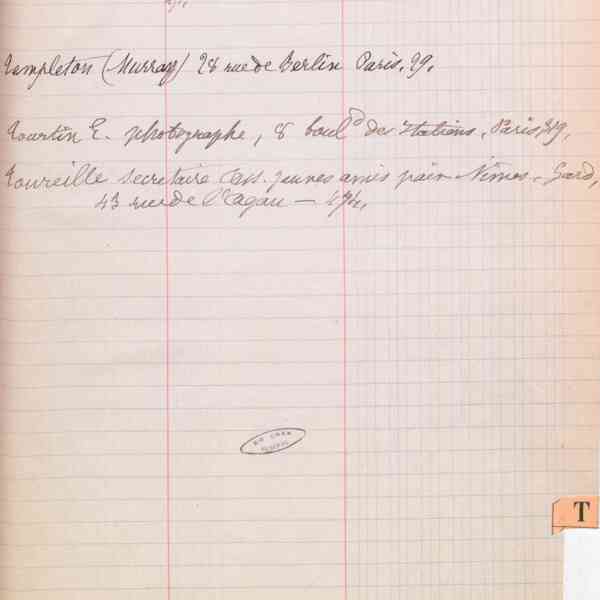 Templeton (Murray) 28 rue de Berlin Paris. 29.
Tourtin E. photographe, 8 boul^d des Italiens, Paris, 219,
Toureille secrétaire Ass. jeunes amis paix Nîmes - Gard,
43 rue de l'Agau — 494,
T